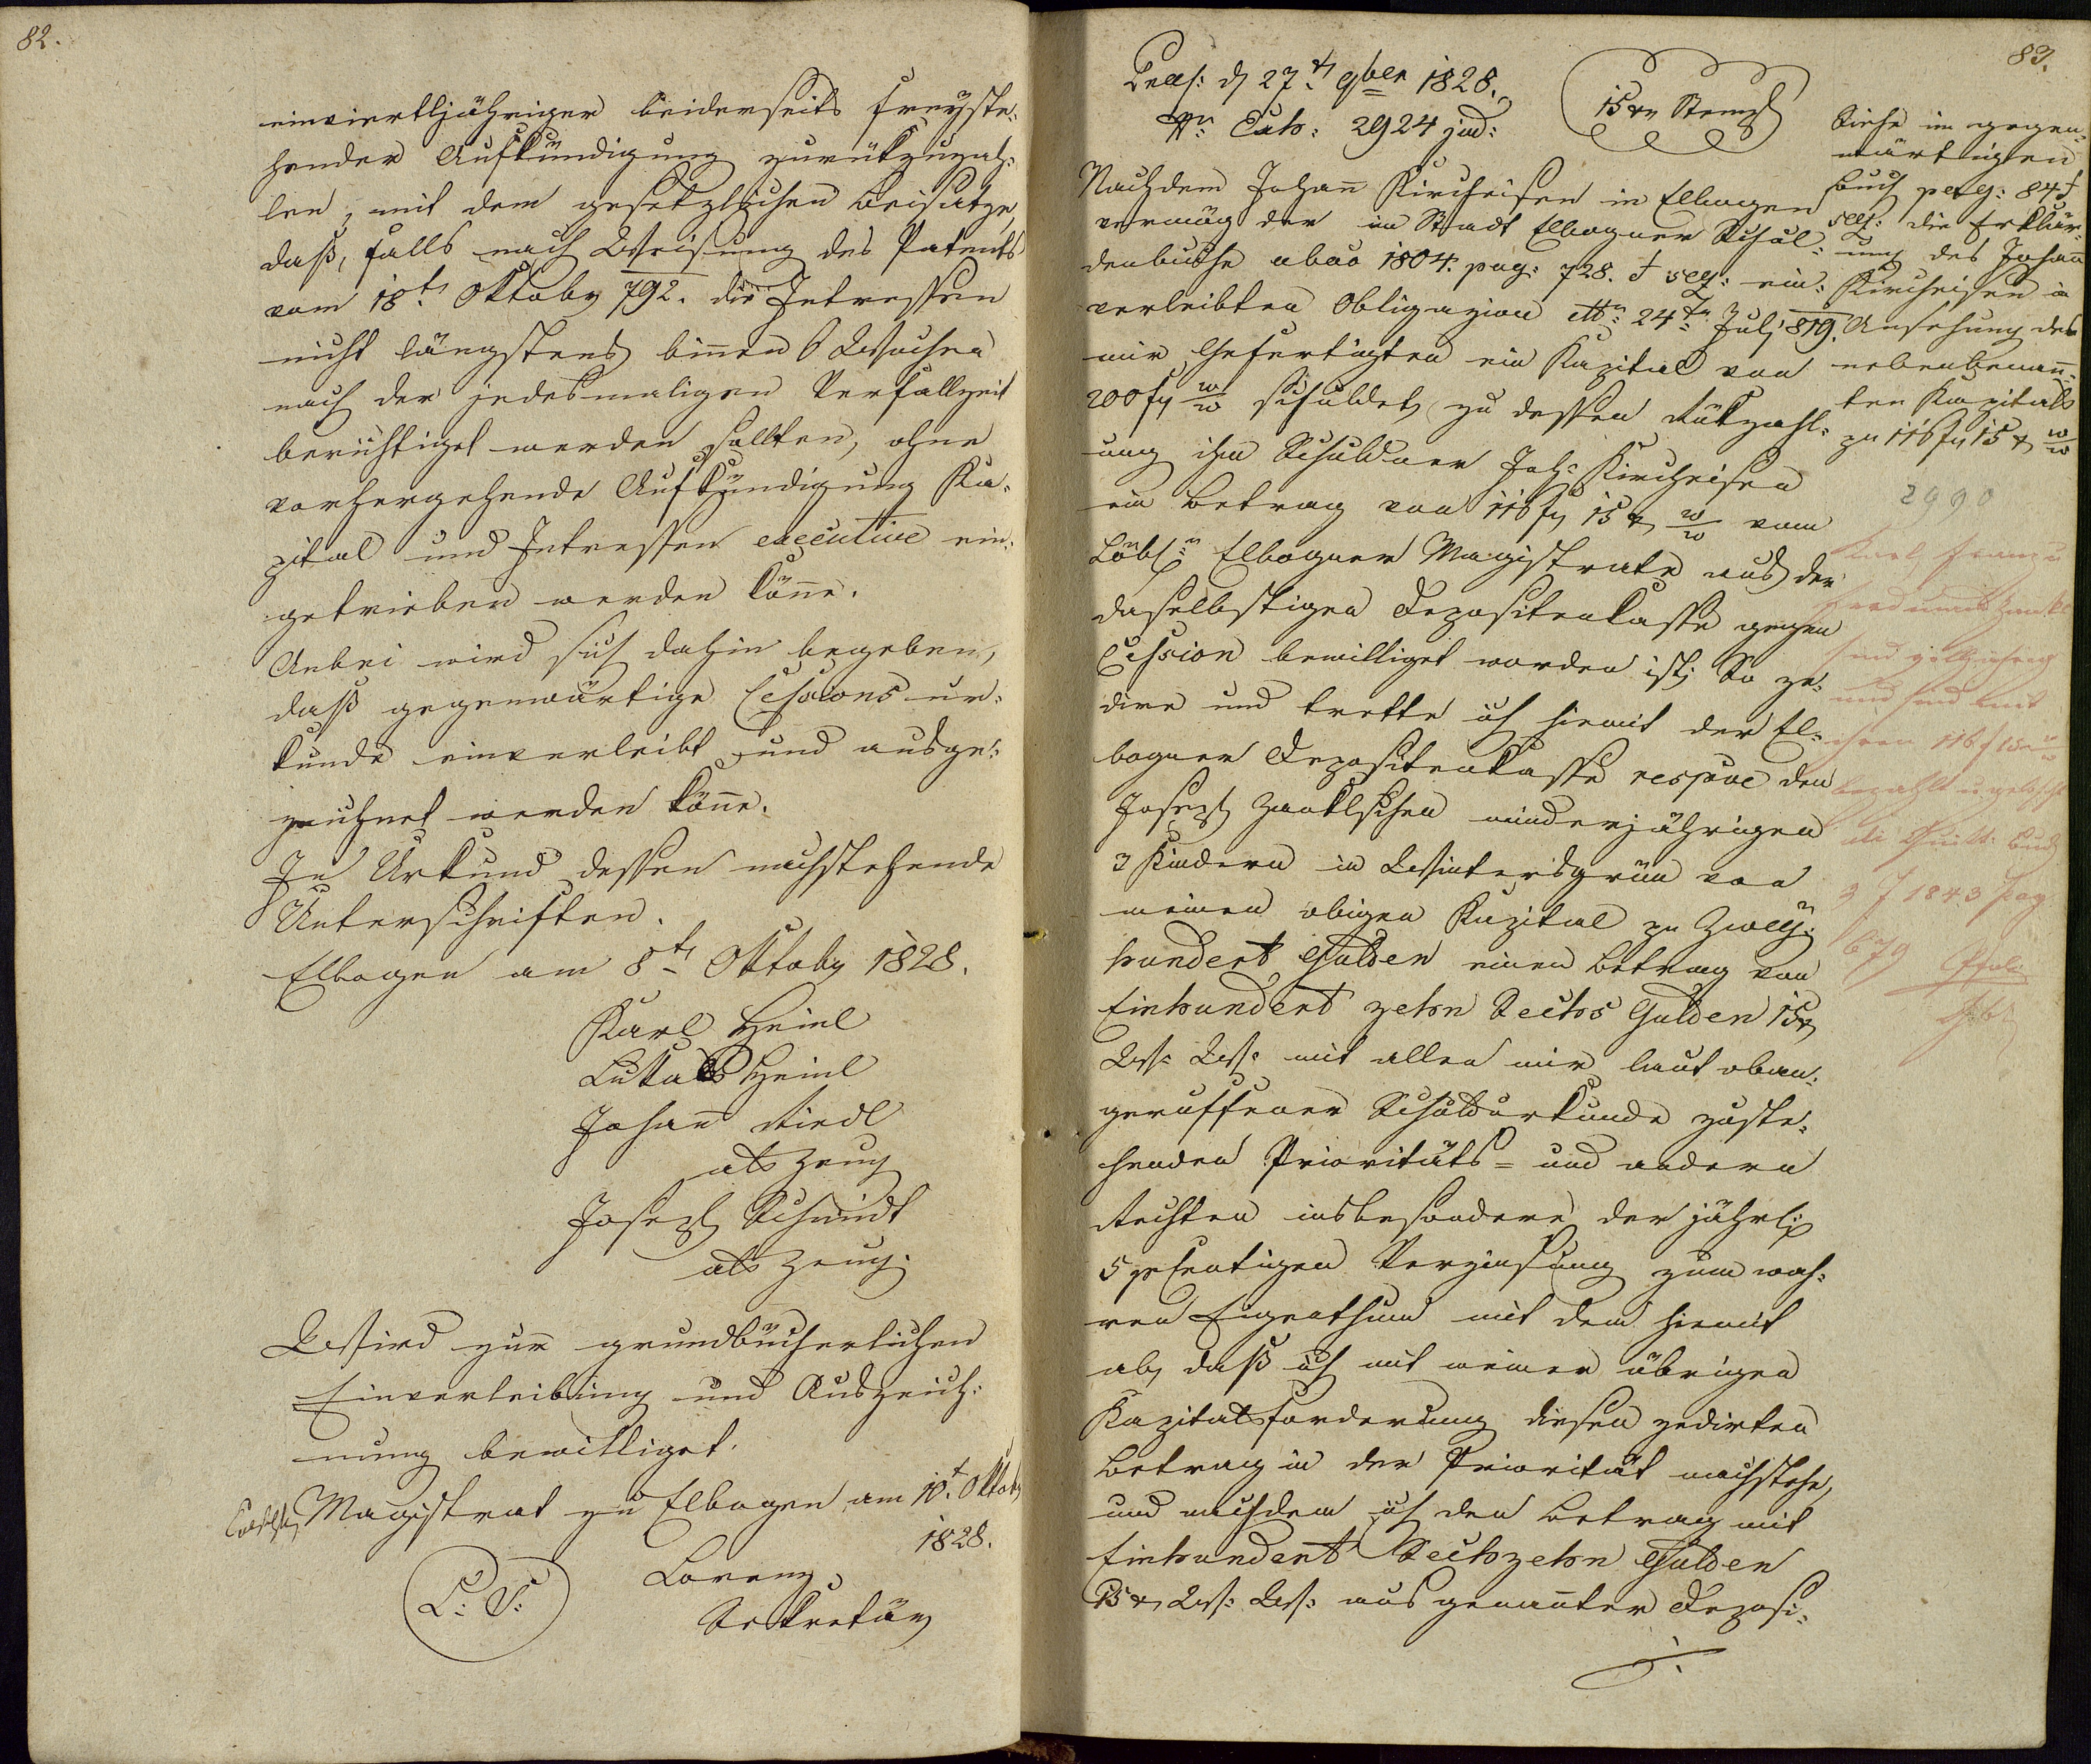 82.
einviertljähriger beiderseits freyste-
hender Aufkündigung zurükzuzah-
len, mit dem gesetzlichen Beisatze,
daß, falls nach Weisung des Patents
vom 18t. Oktober 792. die Intressen
nicht längstens binnen 6 Wochen
nach der jedesmaligen Verfallzeit
berichtiget werden sollten, ohne
vorhergehende Aufkündigung Ka-
pital und Intressen executive ein-
getrieben werden könne.
Anbei wird sich dahin begeben,
daß gegenwärtige Cessions ur-
kunde einverleibt und ausge-
zeichnet werden könne.
In Urkund dessen nachstehende
Unterschriften.
Elbogen am 8t. Oktober 1828.
Karl Heinl
Lukas Heinl
Johann Riedl
als Zeug
Joseph Schmidt
als Zeug.
Wird zur grundbücherlichen
Einverleibung und Auszeich-
nung bewilliget.
Magistrat zu Elbogen am 10t. Oktob
1828.
L: S:
Lorenz
Sekretär
83.
Praes: d 27t 9ber 1828.
Nr Exh: 2924 jud:
15 xr Stempl
Nachdem Johann Kircheisen in Elbogen
vermög der im Stadt Elbogner Schul-
denbuche abao 1804. pag: 728. et seq: ein-
verleibten Obligazion dtto 24ten July 819.
mir Gefertigten ein Kapital von
200 fl w/w schuldet, zu dessen Rükzahl-
ung ihm Schuldner Joh: Kircheisen
ein Betrag von 116 fl 15 xr w/w vom
Löbl: Elbogner Magistrate aus der
daselbstigen Depositenkasse gegen
Cession bewilliget worden ist; So ze-
dire und trette ich hiemit der El-
bogner Depositenkasse respve den
Joseph Hanklschen minderjährigen
3 Kindern in Wintersgrün von
meinen obigen Kapital zu Zwey-
hundert Gulden einen Betrag von
Einhundert zehn Sechs Gulden 15 xr
W: W: mit allen mir laut oban-
geruffener Schuldurkunde zuste-
henden Prioritäts- und andern
Rechten insbesondere der jährl:
5 pCentigen Verzinsung zum wah-
ren Eigenthum mit dem hiemit
ab, daß ich mit meiner übrigen
Kapitalsforderung diesen zedirten
Betrag in der Priorität nachstehe,
und nachdem ich den Betrag mit
Einhundert Sechzehn Gulden
15 xr W: W: aus genannter Deposi-
./.
Siehe im gegen-
wärtigen
Buch pag: 84 et
seq: die Erklär-
ung des Johann
Kircheisen in
Ansehung des
nebenbenann-
ten Kapitals
zu 116 fl 15 xr w/w
2990
Karl, Franz u
sind
und sind mit
ihren 116 f 15 xr
bezahlt u gelöscht
Quitt: Buch
1843 pag
679